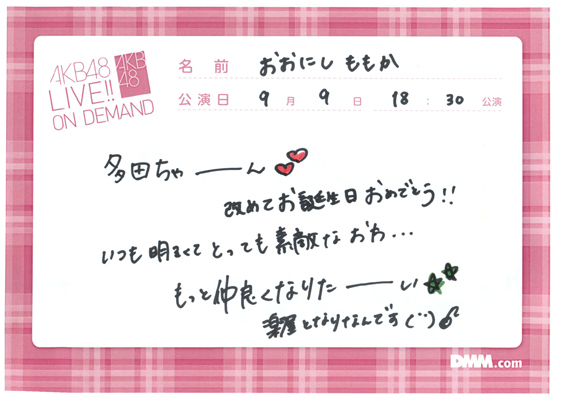 AKB48
LIVE!!
ON DEMAND
AKB
48
名前 おおにし ももか
公演日 9月 9日 18:30公演
多田ちゃーーん
改めてお誕生日おめでとう!!
いつも明るくてとっても素敵なおわ...
もっと仲良くなりたーーい
楽屋となりなんです(¨)
DMM.com